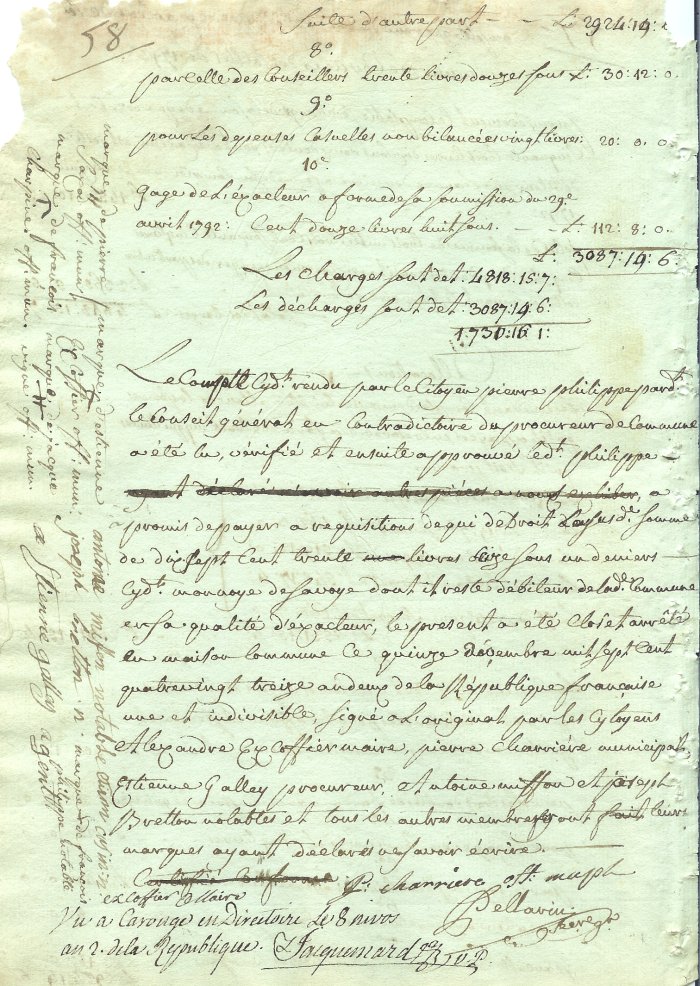 58
Suite d'autre part — £ 2924:19:
8°
par celle des Conseillers trente livres douzes sous £: 30:12:0
9°
pour Les depenses Casuelles non bilancées vingt livres: 20:0:0
10e
Gage de L'éxacteur a forme de sa soumission du 29e
avril 1792: Cent douze livres huit sous. — £: 112:8:0
£: 3087:19:6
Les charges sont de £: 4818:15:7:
Les décharges sont de £: 3087:19:6:
1.730:16 1:
Le Compte Cydt rendu par le Citoyen pierre philippe pardt
le Conseil général en Contradictoire du procureur de Commune
a été lu, vérifié et ensuite approuvé ledt philippe —
ayant déclaré n'avoir autres pièces a nous exhiber, a
promis de payer a requisitions de qui de Droit La susde somme
de dix sept Cent trente livres seize sous un deniers
Cydt monnoye de savoye dont il reste débiteur de lade Commune
en sa qualité d'éxacteur, le present a été Clos et arrêté
en maison Commune Ce quinze Novembre mil sept Cent
quatre vingt treize an deux de la République française
une et indivisible, signé a L'original par les Cytoyens
Alexandre Excoffier maire, pierre Charriére municipal,
Estienne Galley procureur, Antoine misson et joseph
Bretton notables et tous les autres membres font fait leurs
marques ayant déclarés ne savoir écrire.
Certifié Conforme
P. charriere off. mupl
excoffier Maire
Pellarin
Vu a Carouge en Directoire Le 8 nivos
an 2. de la République. Jacquemard
marque de pierre
off: mun:
marque d'estienne
Excoffier off: mun:
marque de francois
Charriere off: mun:
marque de jaque
off: mun:
antoine misson notable
joseph bretton n.
marque de francois
philippe notable
a Stienne galley agent